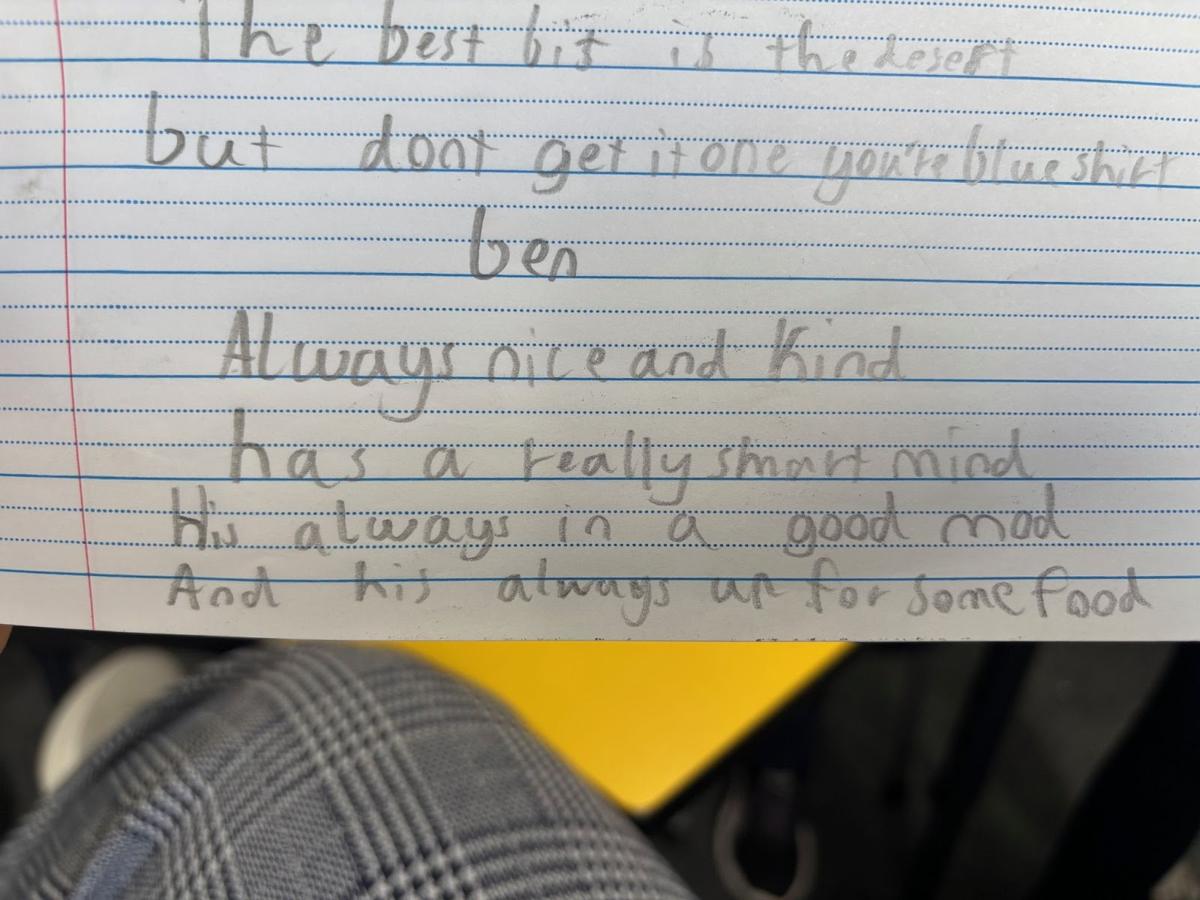 The best bit is the desert
but dont get it one you're blue shirt
ben
Always nice and kind
has a really smart mind
His always in a good mod
And his always up for some food